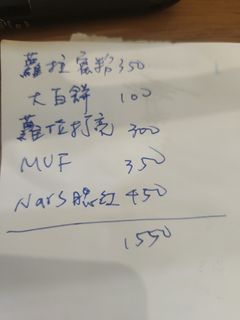 蘿拉蜜粉350
大白餅 100
蘿拉打亮 300
MUF 350
Nars腮紅 450
1550